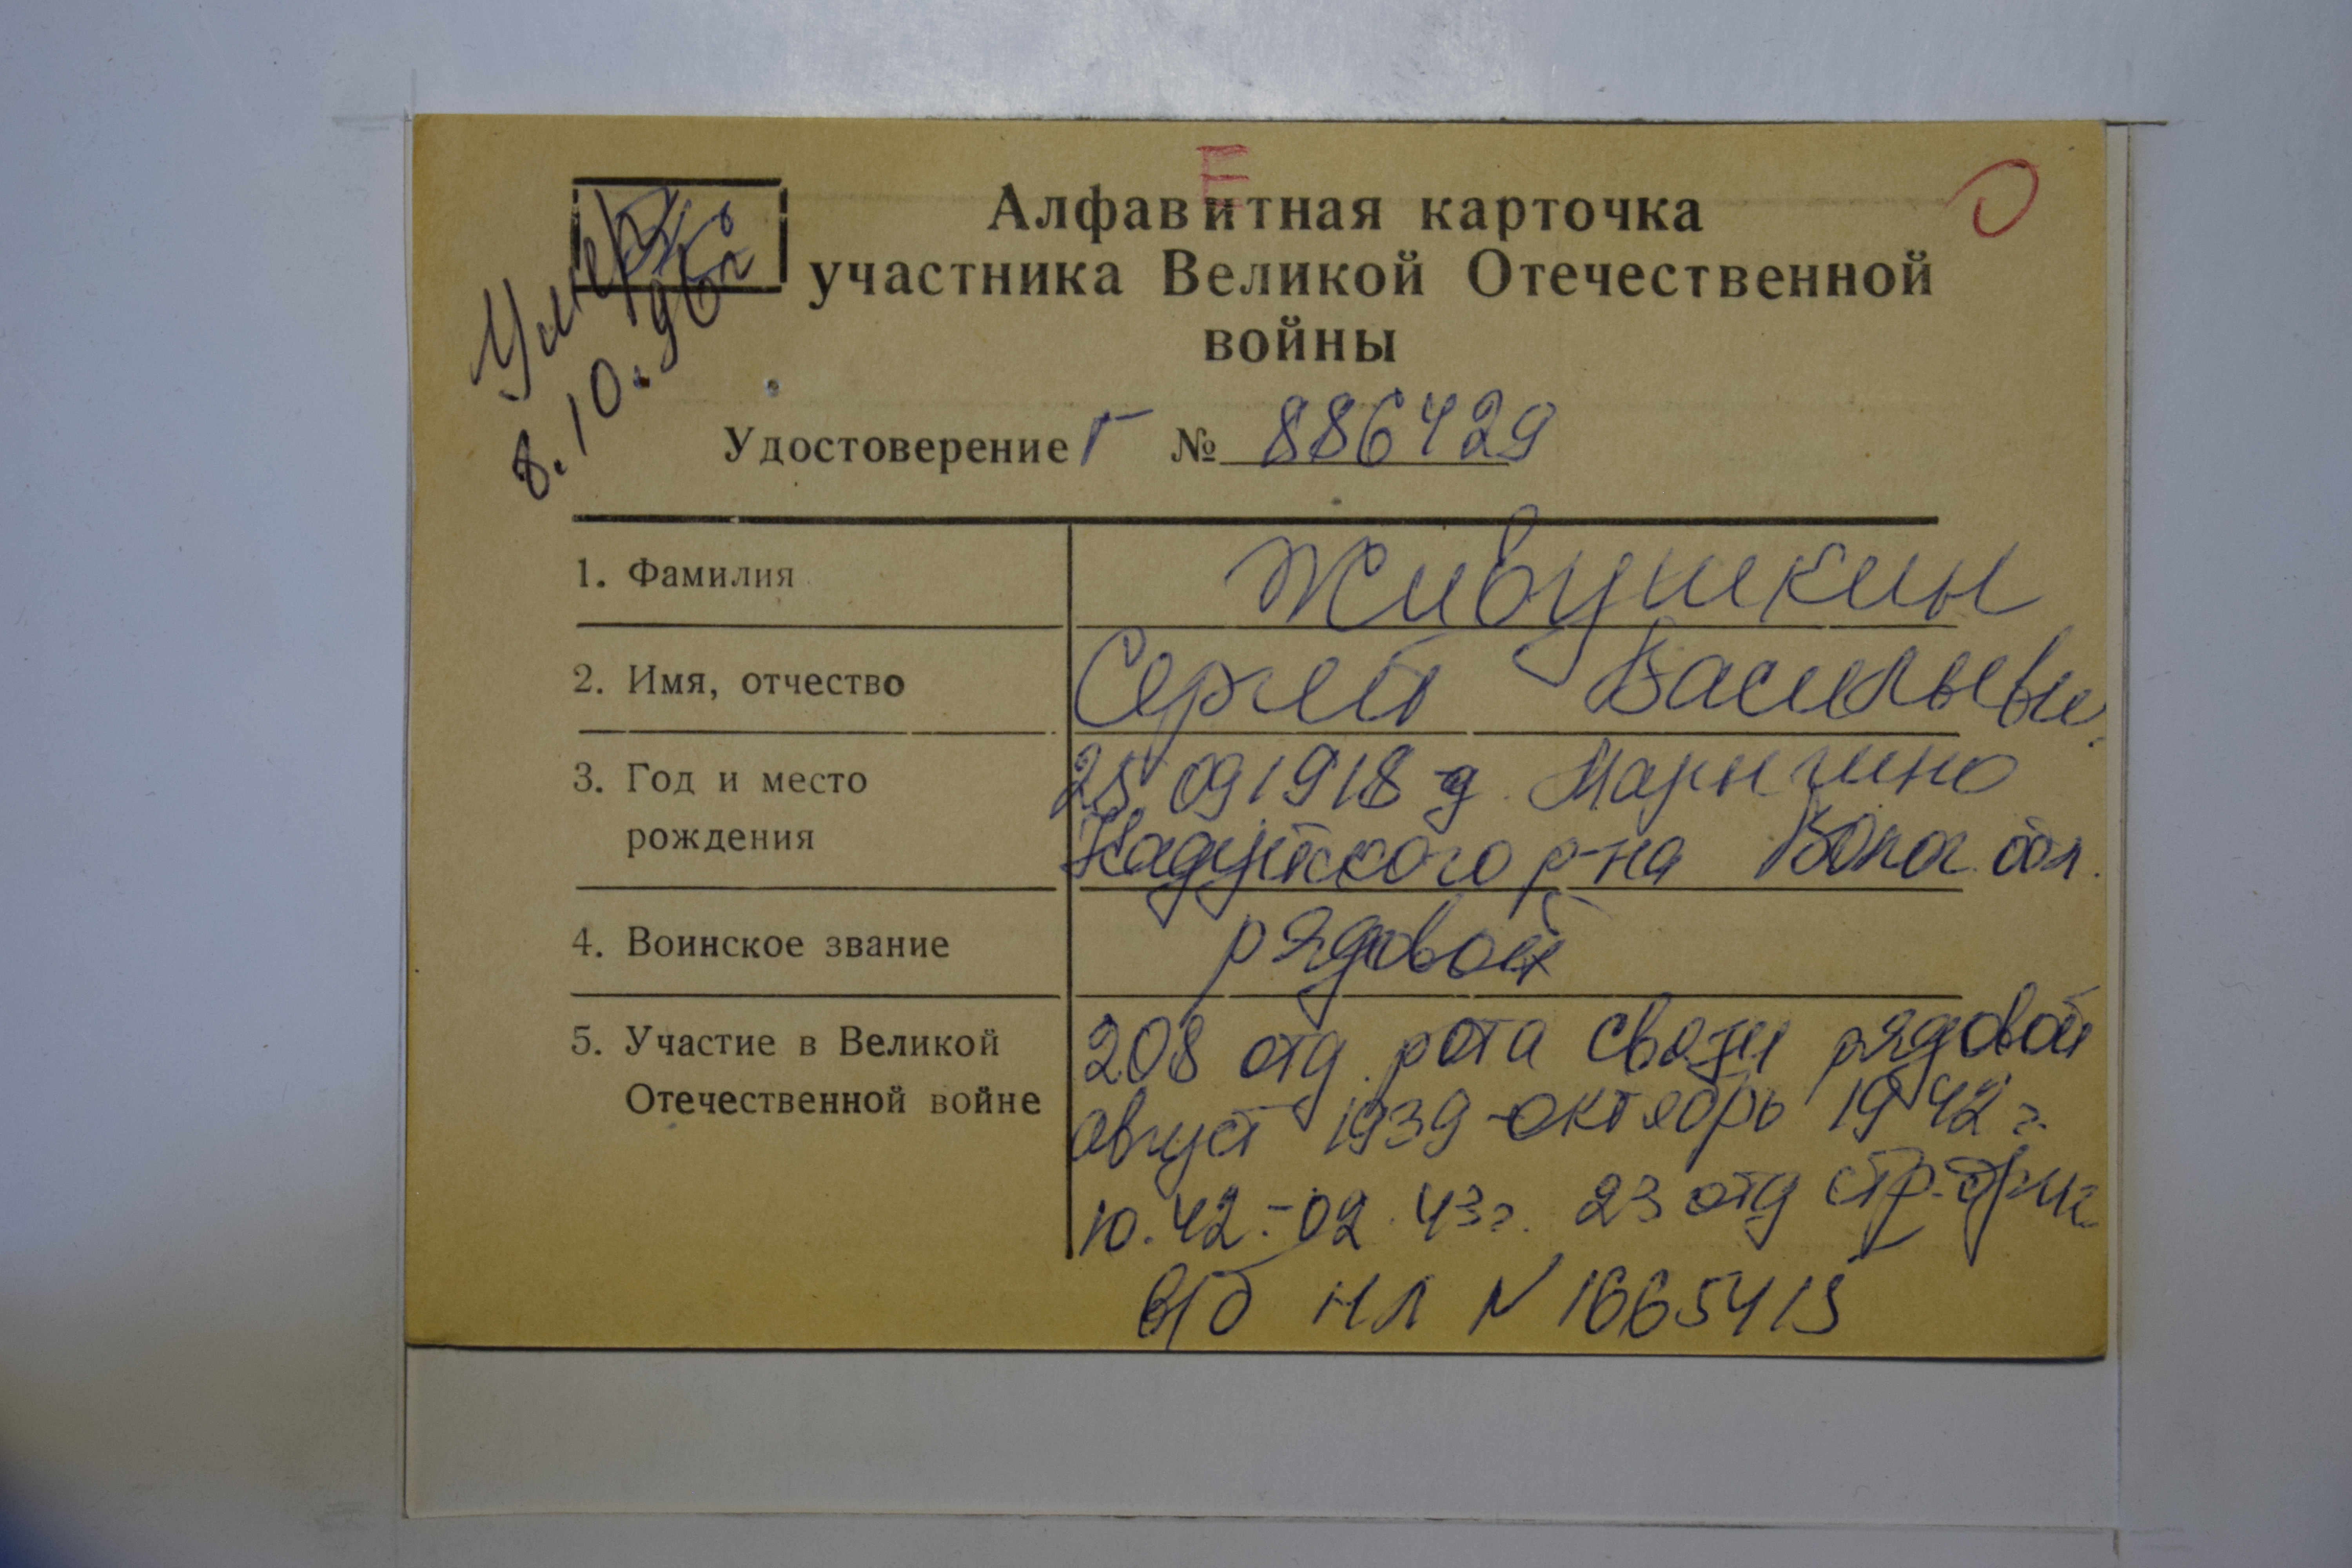 Е
О
Алфавитная карточка
участника Великой Отечественной
войны
Умер
8.10.96г
Удостоверение Г № 886429
1. Фамилия Живушкин
2. Имя, отчество Сергей Васильеви.
3. Год и место 25.09 1918 д. Марыгино
рождения Кадуйского р-на Волог. обл.
4. Воинское звание рядовой
5. Участие в Великой 208 отд. рота связи рядовой
Отечественной войне август 1939 - октябрь 1942 г.
10.42.-02.43г. 23 отд стр. бриг
в/б НЛ N 1665415